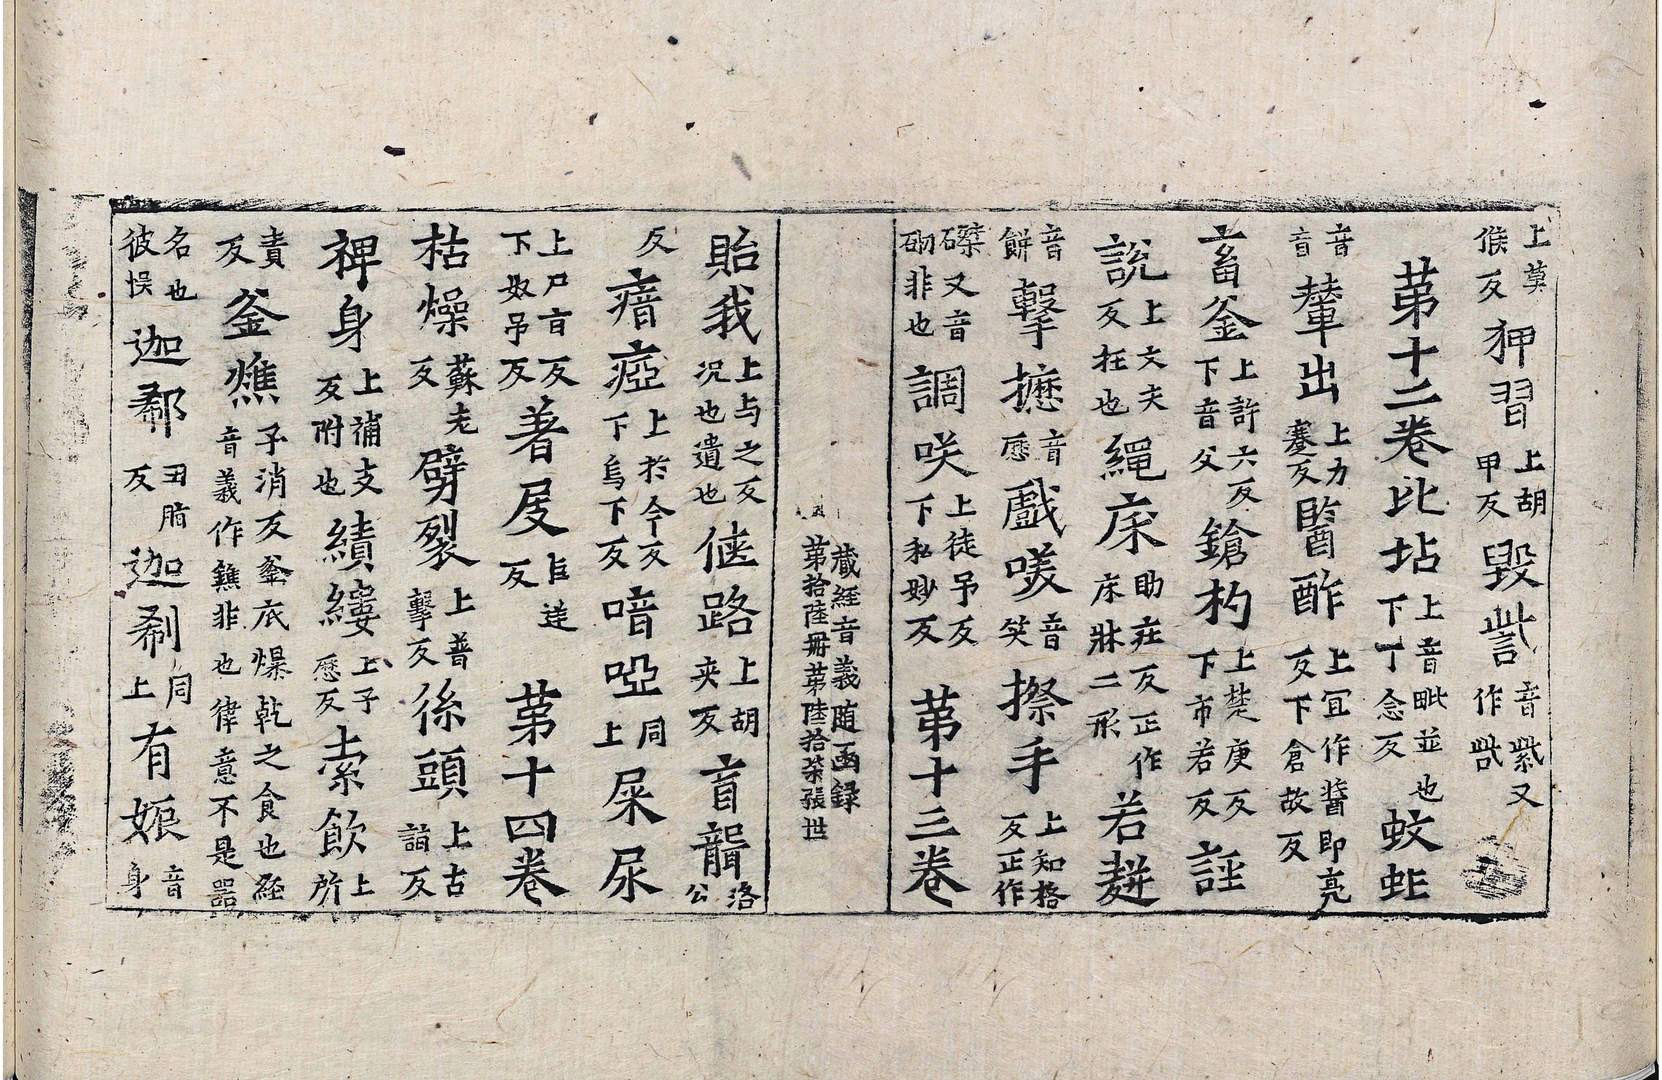 上莫候反狎習上胡甲反毀訾音紫又作呰
第十二卷比坫上音毗並也下丁念反蚊虻
音音輦出上力蹇反醫酢上宜作醬即亮反下倉故反
畜釜上許六反下音父鎗杓上楚庚反下市若反誈
說上文夫反抂也繩床助庄反正作床牀二形若䴵
音餅擊攊音歷戲㗛音笑搩手上知格反正作
磔又音砌非也調咲上徒予反下私妙反第十三卷
藏經音義随函録
第拾陸冊第陸拾柒張世
貽我上与之反況也遺也狹路上胡夾反盲聾洛公
反瘖瘂上扵今反下烏下反喑啞同上屎尿
上尸旨反下奴吊反著屐巨逆反第十四卷
枯燥蘇老反劈裂上普擊反係頭上古詣反
裨身上補支反附也績縷上子歷反索飲上所
責反釜燋子消反釜底爆乾之食也經音義作鐎非也律意不是器
名也彼悮迦郗丑脂反迦𠛰同上有娠音身